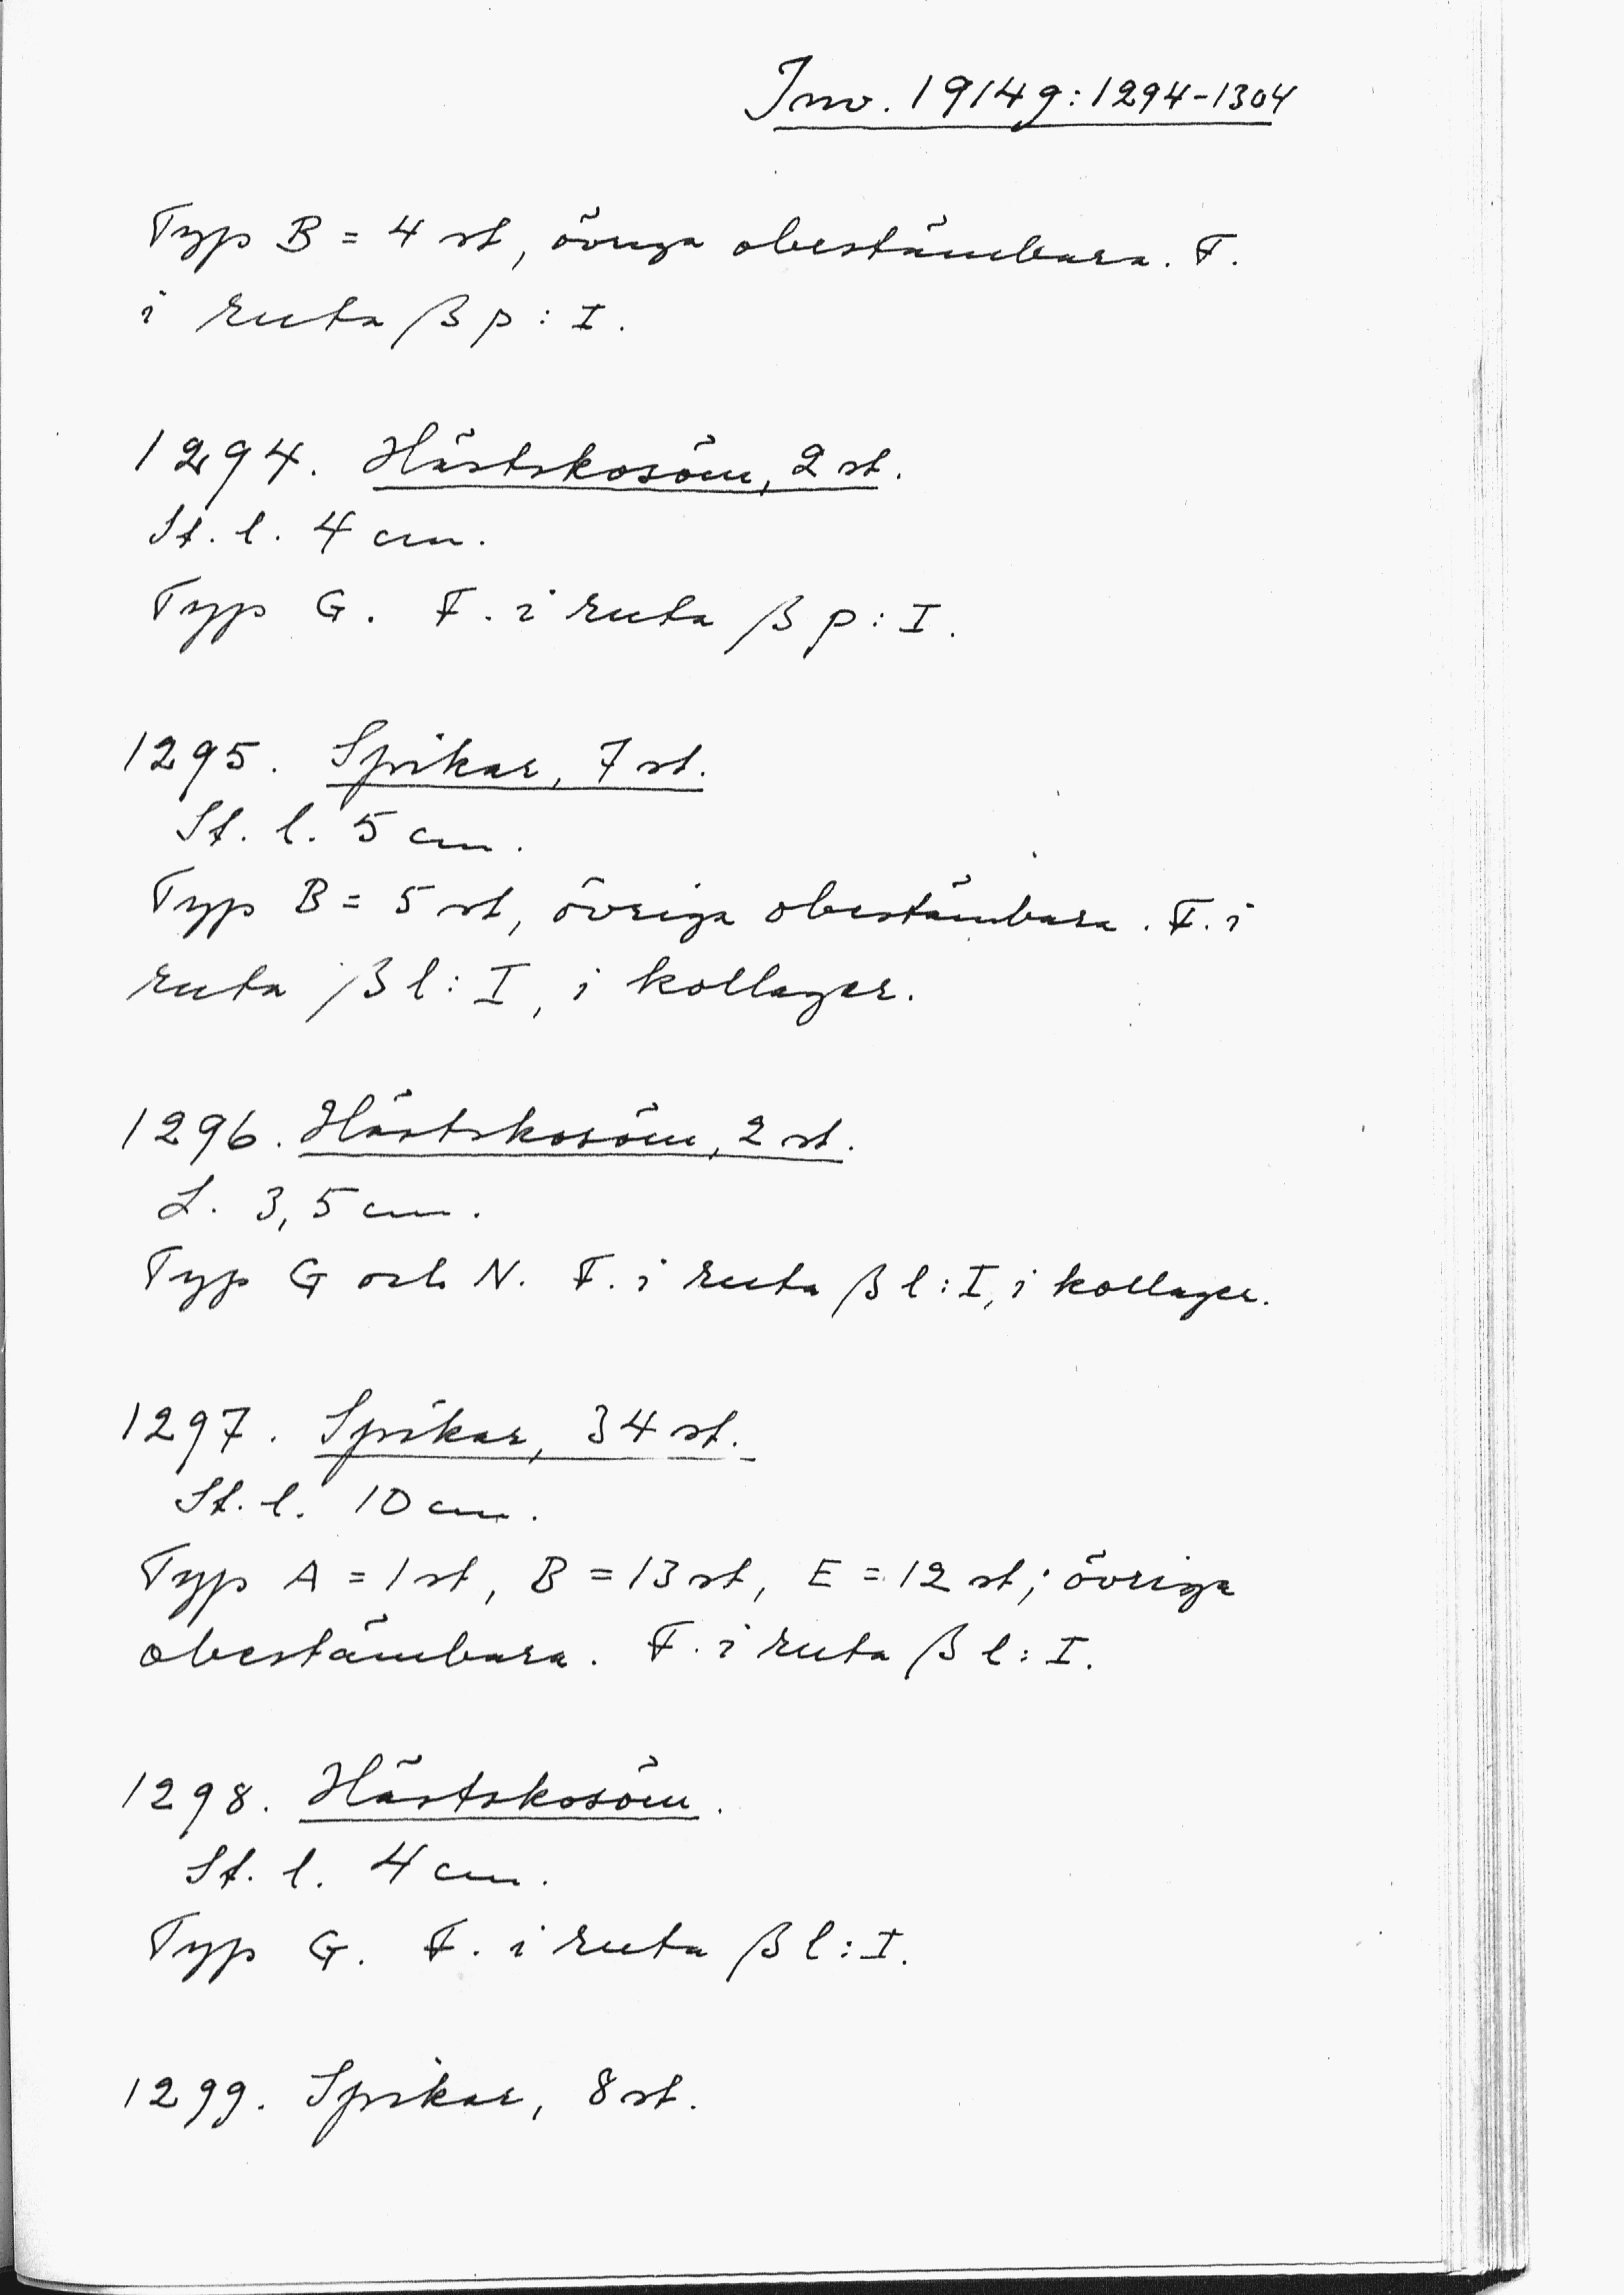 Inv. 19149:1294-1304
Typ B = 4 st, övriga obestämbara. F.
i ruta β p : I.
1294. Hästskosöm, 2 st.
St. l. 4 cm.
Typ G. F. i ruta β p : I.
1295. Spikar, 7 st.
St. l. 5 cm.
Typ B = 5 st, övriga obestämbara. F. i
ruta β l : I, i kollager.
1296. Hästskosöm, 2 st.
L. 3,5 cm.
Typ G och N. F. i ruta β l : I, i kollager.
1297. Spikar, 34 st.
St. l. 10 cm.
Typ A = 1 st, B = 13 st, E = 12 st; övriga
obestämbara. F. i ruta β l : I.
1298. Hästskosöm.
St. l. 4 cm.
Typ G. F. i ruta β l : I.
1299. Spikar, 8 st.